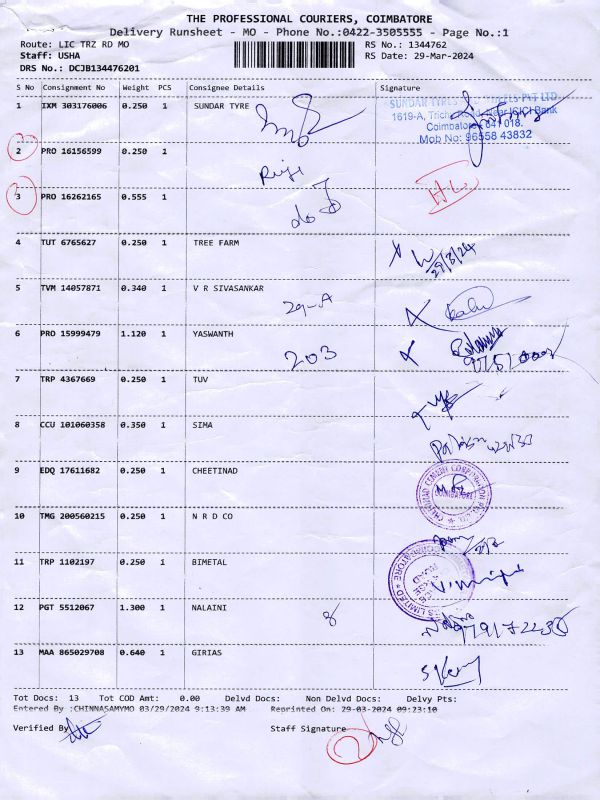 THE PROFESSIONAL COURIERS, COIMBATORE
Delivery Runsheet - MO - Phone No.:0422-3505555 - Page No.:1
Route: LIC TRZ RD MO RS No.: 1344762
Staff: USHA RS Date: 29-Mar-2024
DRS No.: DCJB134476201
S No Consignment No Weight PCS Consignee Details Signature
1 IXM 303176006 0.250 1 SUNDAR TYRE
SUNDAR TYRES PVT LTD
1619-A, Trichy Road, Near ICICI Bank
Coimbatore 641 018.
Mob No: 96558 43832
2 PRO 16156599 0.250 1
3 PRO 16262165 0.555 1 do
4 TUT 6765627 0.250 1 TREE FARM
29/3/24
5 TVM 14057871 0.340 1 V R SIVASANKAR
29-A
6 PRO 15999479 1.120 1 YASWANTH
203
7 TRP 4367669 0.250 1 TUV
8 CCU 101060358 0.350 1 SIMA
9 EDQ 17611682 0.250 1 CHEETINAD
COIMBATORE
10 TMG 200560215 0.250 1 N R D CO
11 TRP 1102197 0.250 1 BIMETAL
12 PGT 5512067 1.300 1 NALAINI 8
13 MAA 865029708 0.640 1 GIRIAS
Tot Docs: 13 Tot COD Amt: 0.00 Delvd Docs: Non Delvd Docs: Delvy Pts:
Entered By :CHINNASAMYMO 03/29/2024 9:13:39 AM Reprinted On: 29-03-2024 09:23:10
Verified By Staff Signature
2